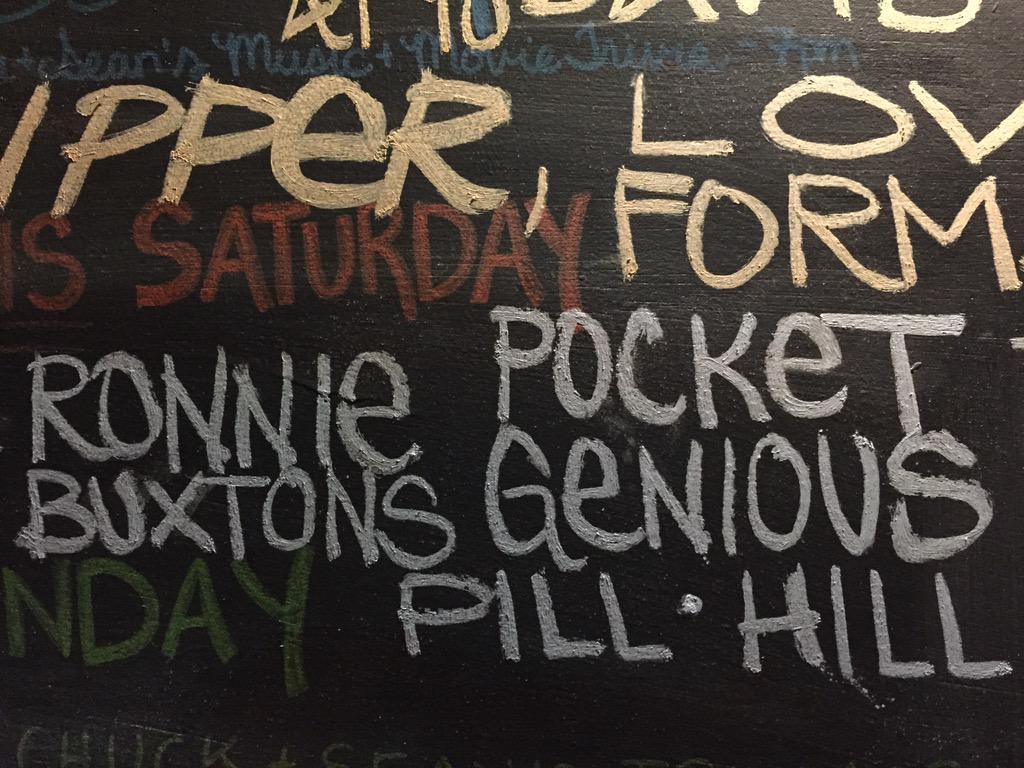 Sean's Music + Movie Trivia - 7pm
IPPER, LOV
IS SATURDAY FORM
RONNIE POCKET
BUXTONS GENIOUS
NDAY PILL · HILL
CHUCK + SEAN'S